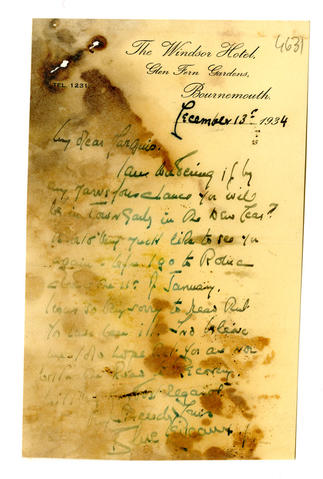 4631
The Windsor Hotel,
Glen Fern Gardens,
TEL. 1231
Bournemouth.
December 13th 1934
My dear
I am wondering if by
any chance you will
be in Town early in the New Year?
I should very much like to see you
again before I go to Rome
about the 15th of January.
I was so very sorry to read that
you have been ill. And believe
me I do hope that you are now
well on the Road to Recovery.
With regards